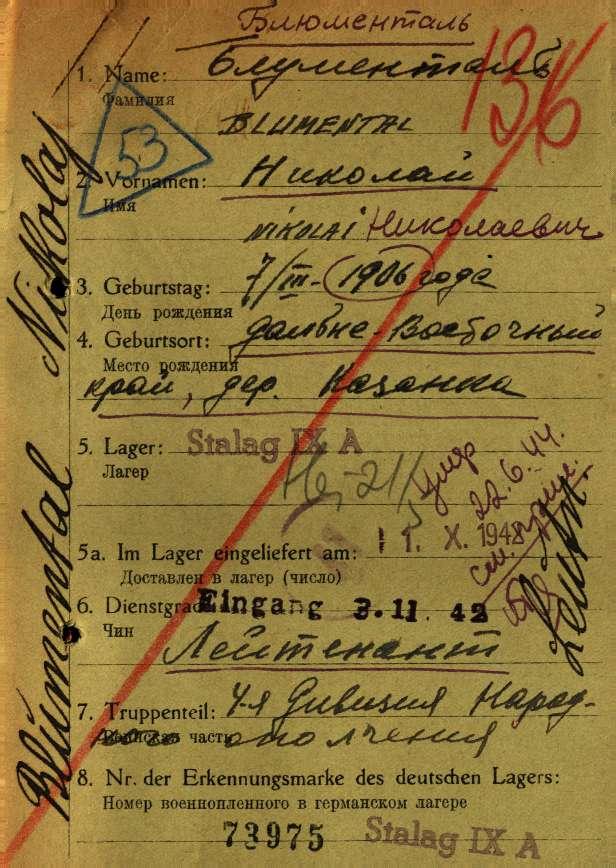 Блюменталь
136
1. Name: Блументаль
Фамилия
BLUMENTAL
53
2. Vornamen: Николай
Имя
NIKOLAI Николаевич
3. Geburtstag: 7/III - 1906 года
День рождения
4. Geburtsort: Дальне-Восточный
Место рождения
край, дер. Казанка
5. Lager: Stalag IX A
Лагер
умер
22.6.44.
5a. Im Lager eingeliefert am: 11. X. 1942
Доставлен в лагер (число)
Eingang 3.11.42
6. Dienstgrad:
Чин
Лейтенант
7. Truppenteil: 4-я Дивизия Народ-
Воинская часть ополчения
8. Nr. der Erkennungsmarke des deutschen Lagers:
Номер военнопленного в германском лагере
73975 Stalag IX A
Blümental Nikolaj